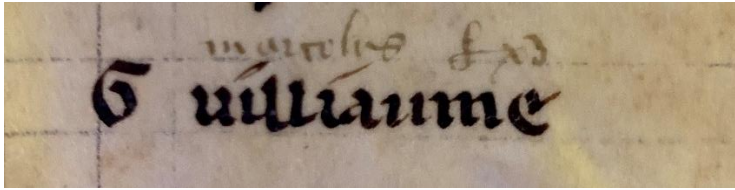 marcelus
G uilliaume